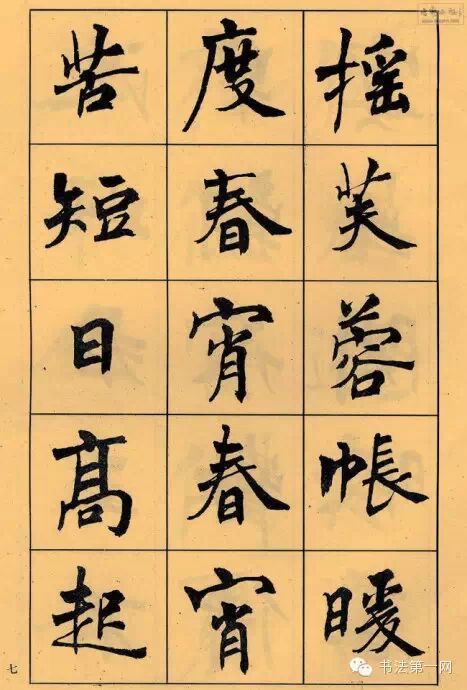 摇芙蓉帳暖
度春宵春宵
苦短日高起
七
书法第一网